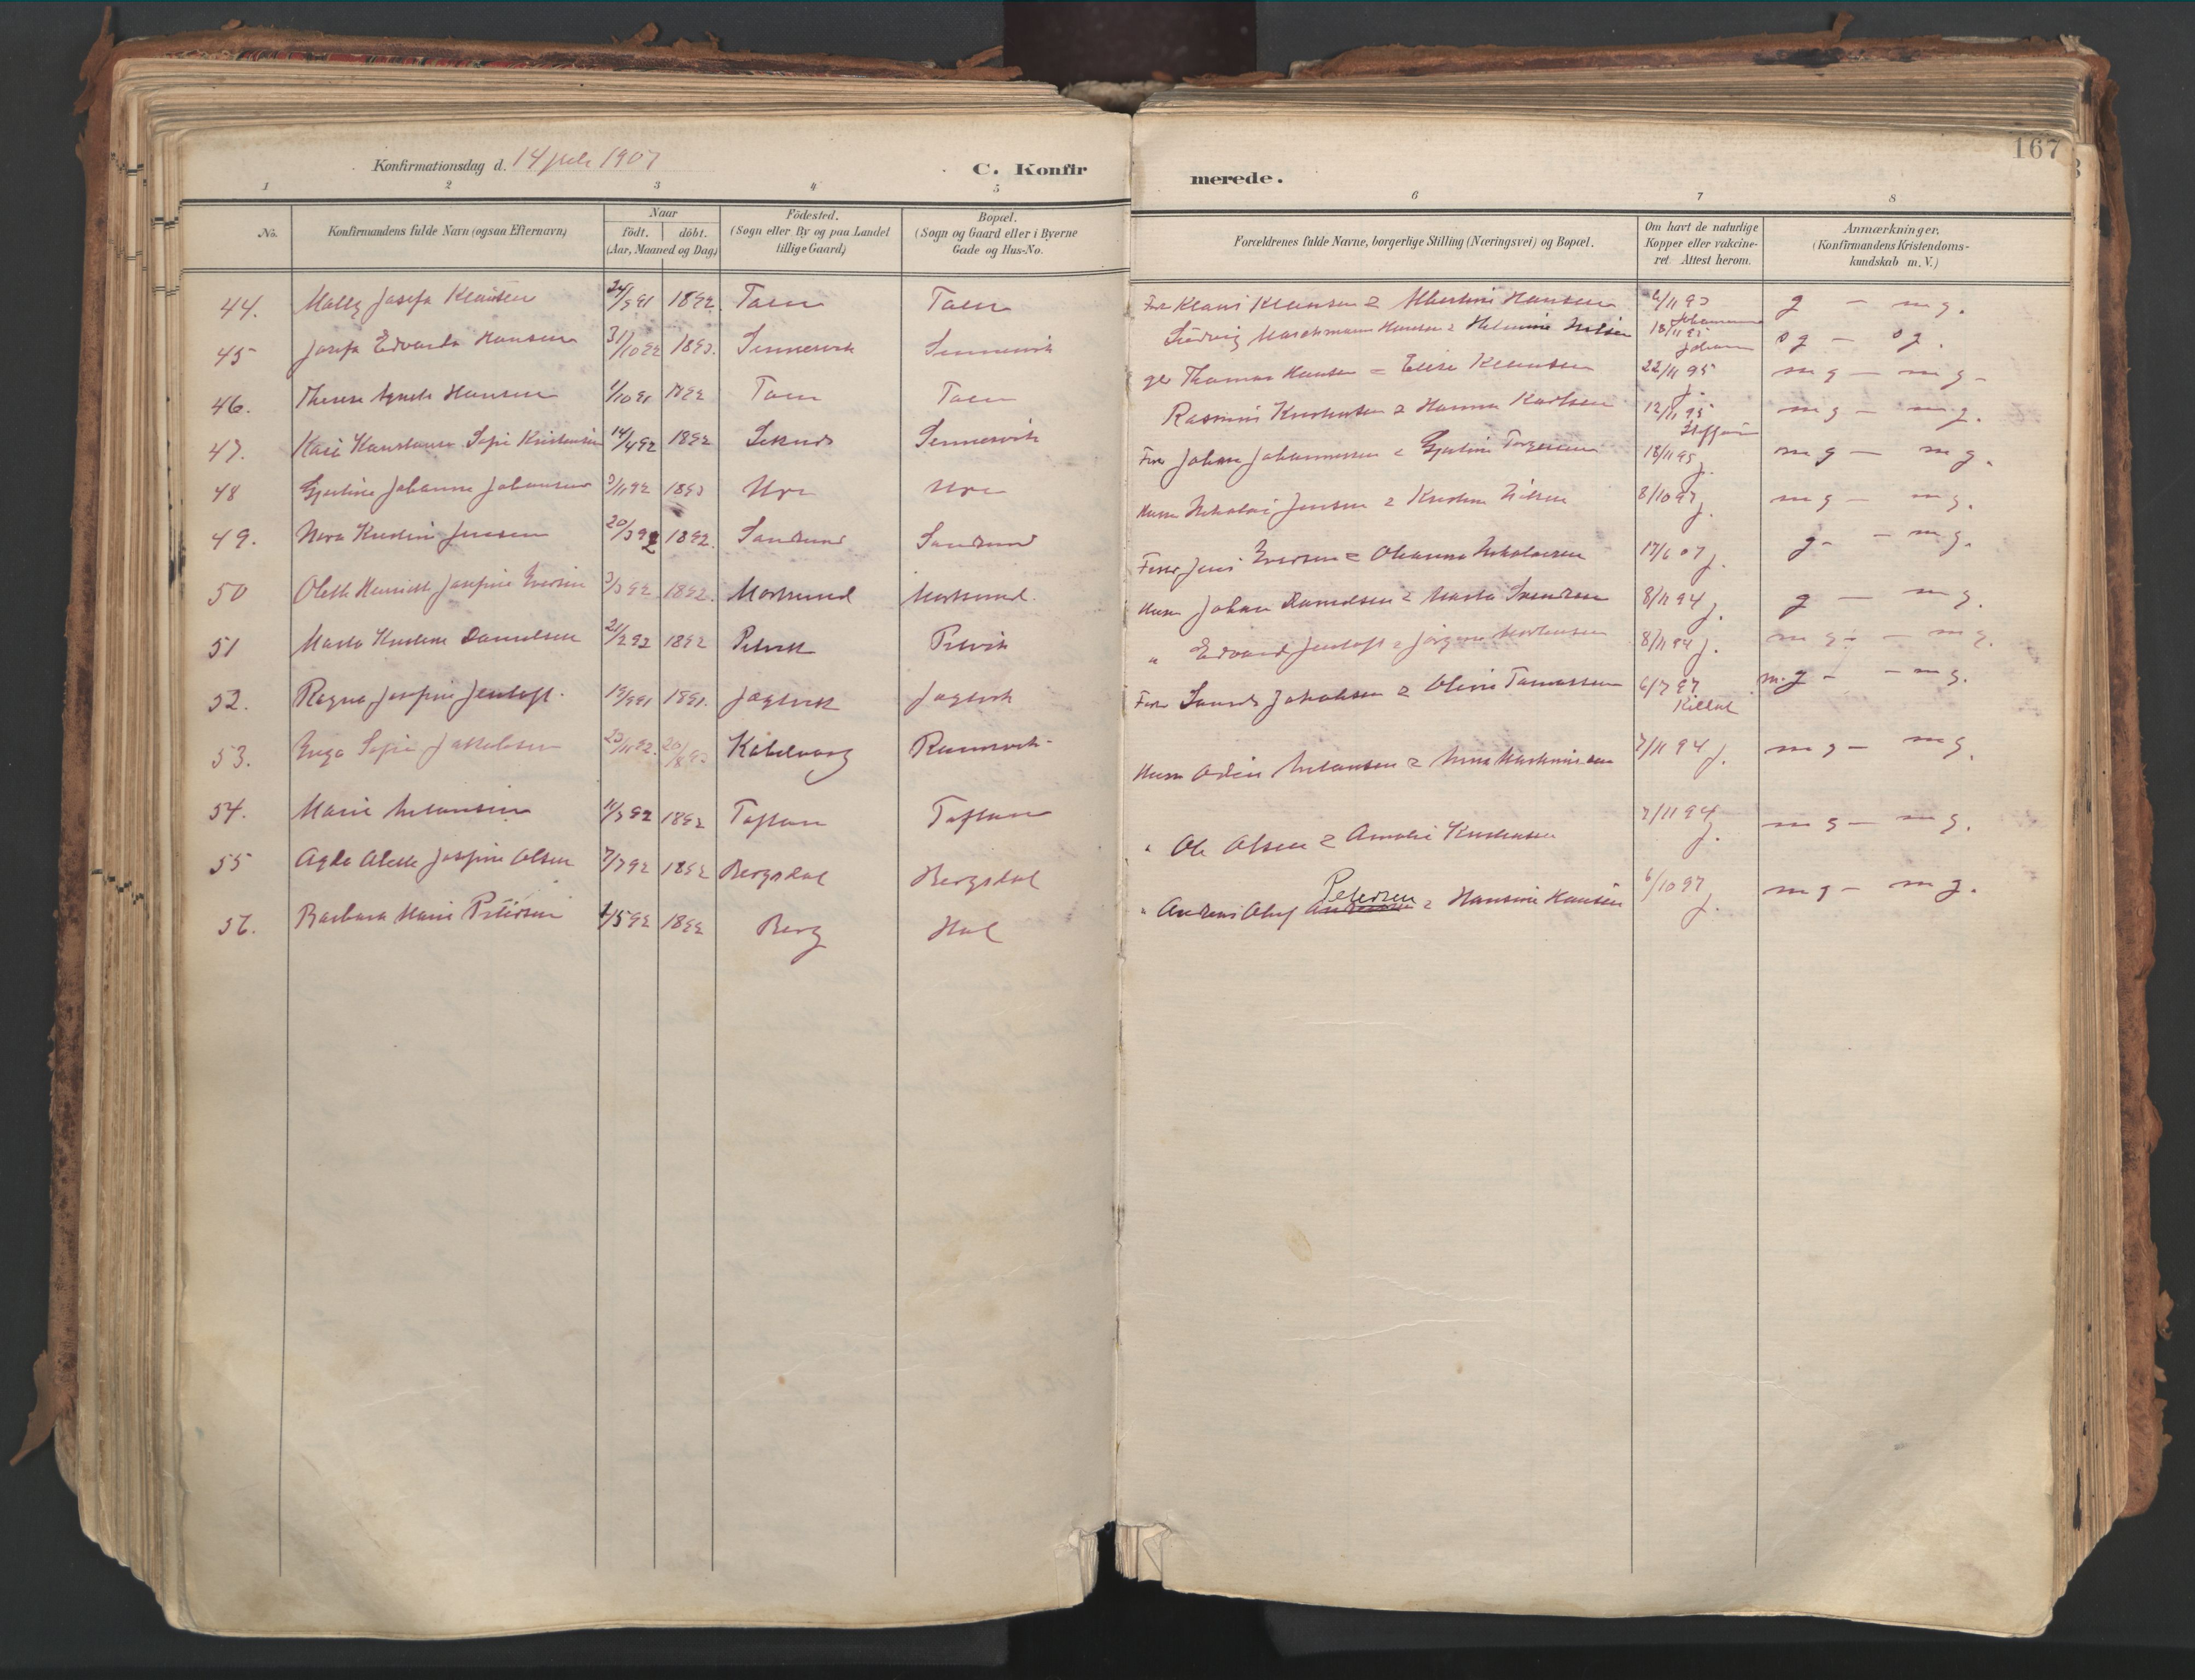 167
Konfirmationsdag d. 14 juli 1907
C. Konfir
merede.
1 2 3 4 5 6 7 8
No.
Konfirmandens fulde Navn (ogsaa Efternavn)
Naar
födt. döbt.
(Aar, Maaned og Dag)
Födested.
(Sogn eller By og paa Landet
tillige Gaard)
Bopæl.
(Sogn og Gaard eller i Byerne
Gade og Hus-No.
Forældrenes fulde Navne, borgerlige Stilling (Næringsvei) og Bopæl.
Om havt de naturlige
Kopper eller vakcine-
ret. Attest herom.
Anmærkninger.
(Konfirmandens Kristendoms-
kundskab m. V.)
44. Josefa Klausen 24/9 91 1892. Taen Taen Klaus Klausen & Albertine Hansen g – mg.
45 Josefa Edvarda Hansen 31/10 92 1893. Sennesvik Sennesvik Ludvig Hansen & Nilsen 18/11 95 Johan
46. Therese Agnete Hansen 1/10 91 1892 Taen Taen Thomas Hansen = Elise Klausen 22/11 95 j. mg – mg –
47. Sofie Kristensen 14/4 92 1892 Sennesvik Rasmus Kristensen & Hanna Karlsen 12/11 95 mg – mg.
48 Gjertine Johanne Johansen 3/11 92 1893 Ure Ure Johan Johannessen & Gjertine Torgersen 18/11 95 j. mg – mg.
49. Nora Kristine Jensen 20/3 92 1892. Sandsund Sandsund Nikolai Jensen & Kristine Nilsen 8/10 97 j. mg – mg.
50 Olette Henriette Josefine Iversen 3/3 92 1892. Mortsund Mortsund. Jens Iversen & Oleanna Nikolaisen 17/6 07 j. g – mg.
51 Marta Kristine Danielsen 21/2 92 1892 Petvik Petvik Johan Danielsen & Marta Svendsen 8/11 94 j. g – mg.
52. Ragna Josefine Jentoft. 19/9 91 1891. Jagtvik Jagtvik " Edvard Jentoft & Jörgine Mortensen 8/11 94 j. mg – mg.
53. Inga Sofie Jakobsen 23/11 92. Kabelvaag Ramsvik Jakobsen & Oline Tomassen 6/7 97 mg – mg.
54. Marie Antonsen 11/3 92 1892 Toftan Toftan Odin Antonsen & Anna 7/11 94 j. mg – mg.
55 Agda Alette Josefine Olsen 7/7 92 1892 Bergsdal Bergsdal " Ole Olsen & Amalie Kristiansen 7/11 94 j. mg – mg.
56. Barbara Marie Petersen 1/5 92 1892 Berg Hol " Andreas Oluf Andreasen Petersen & Hansine Hansen 6/10 97 j. mg – mg.